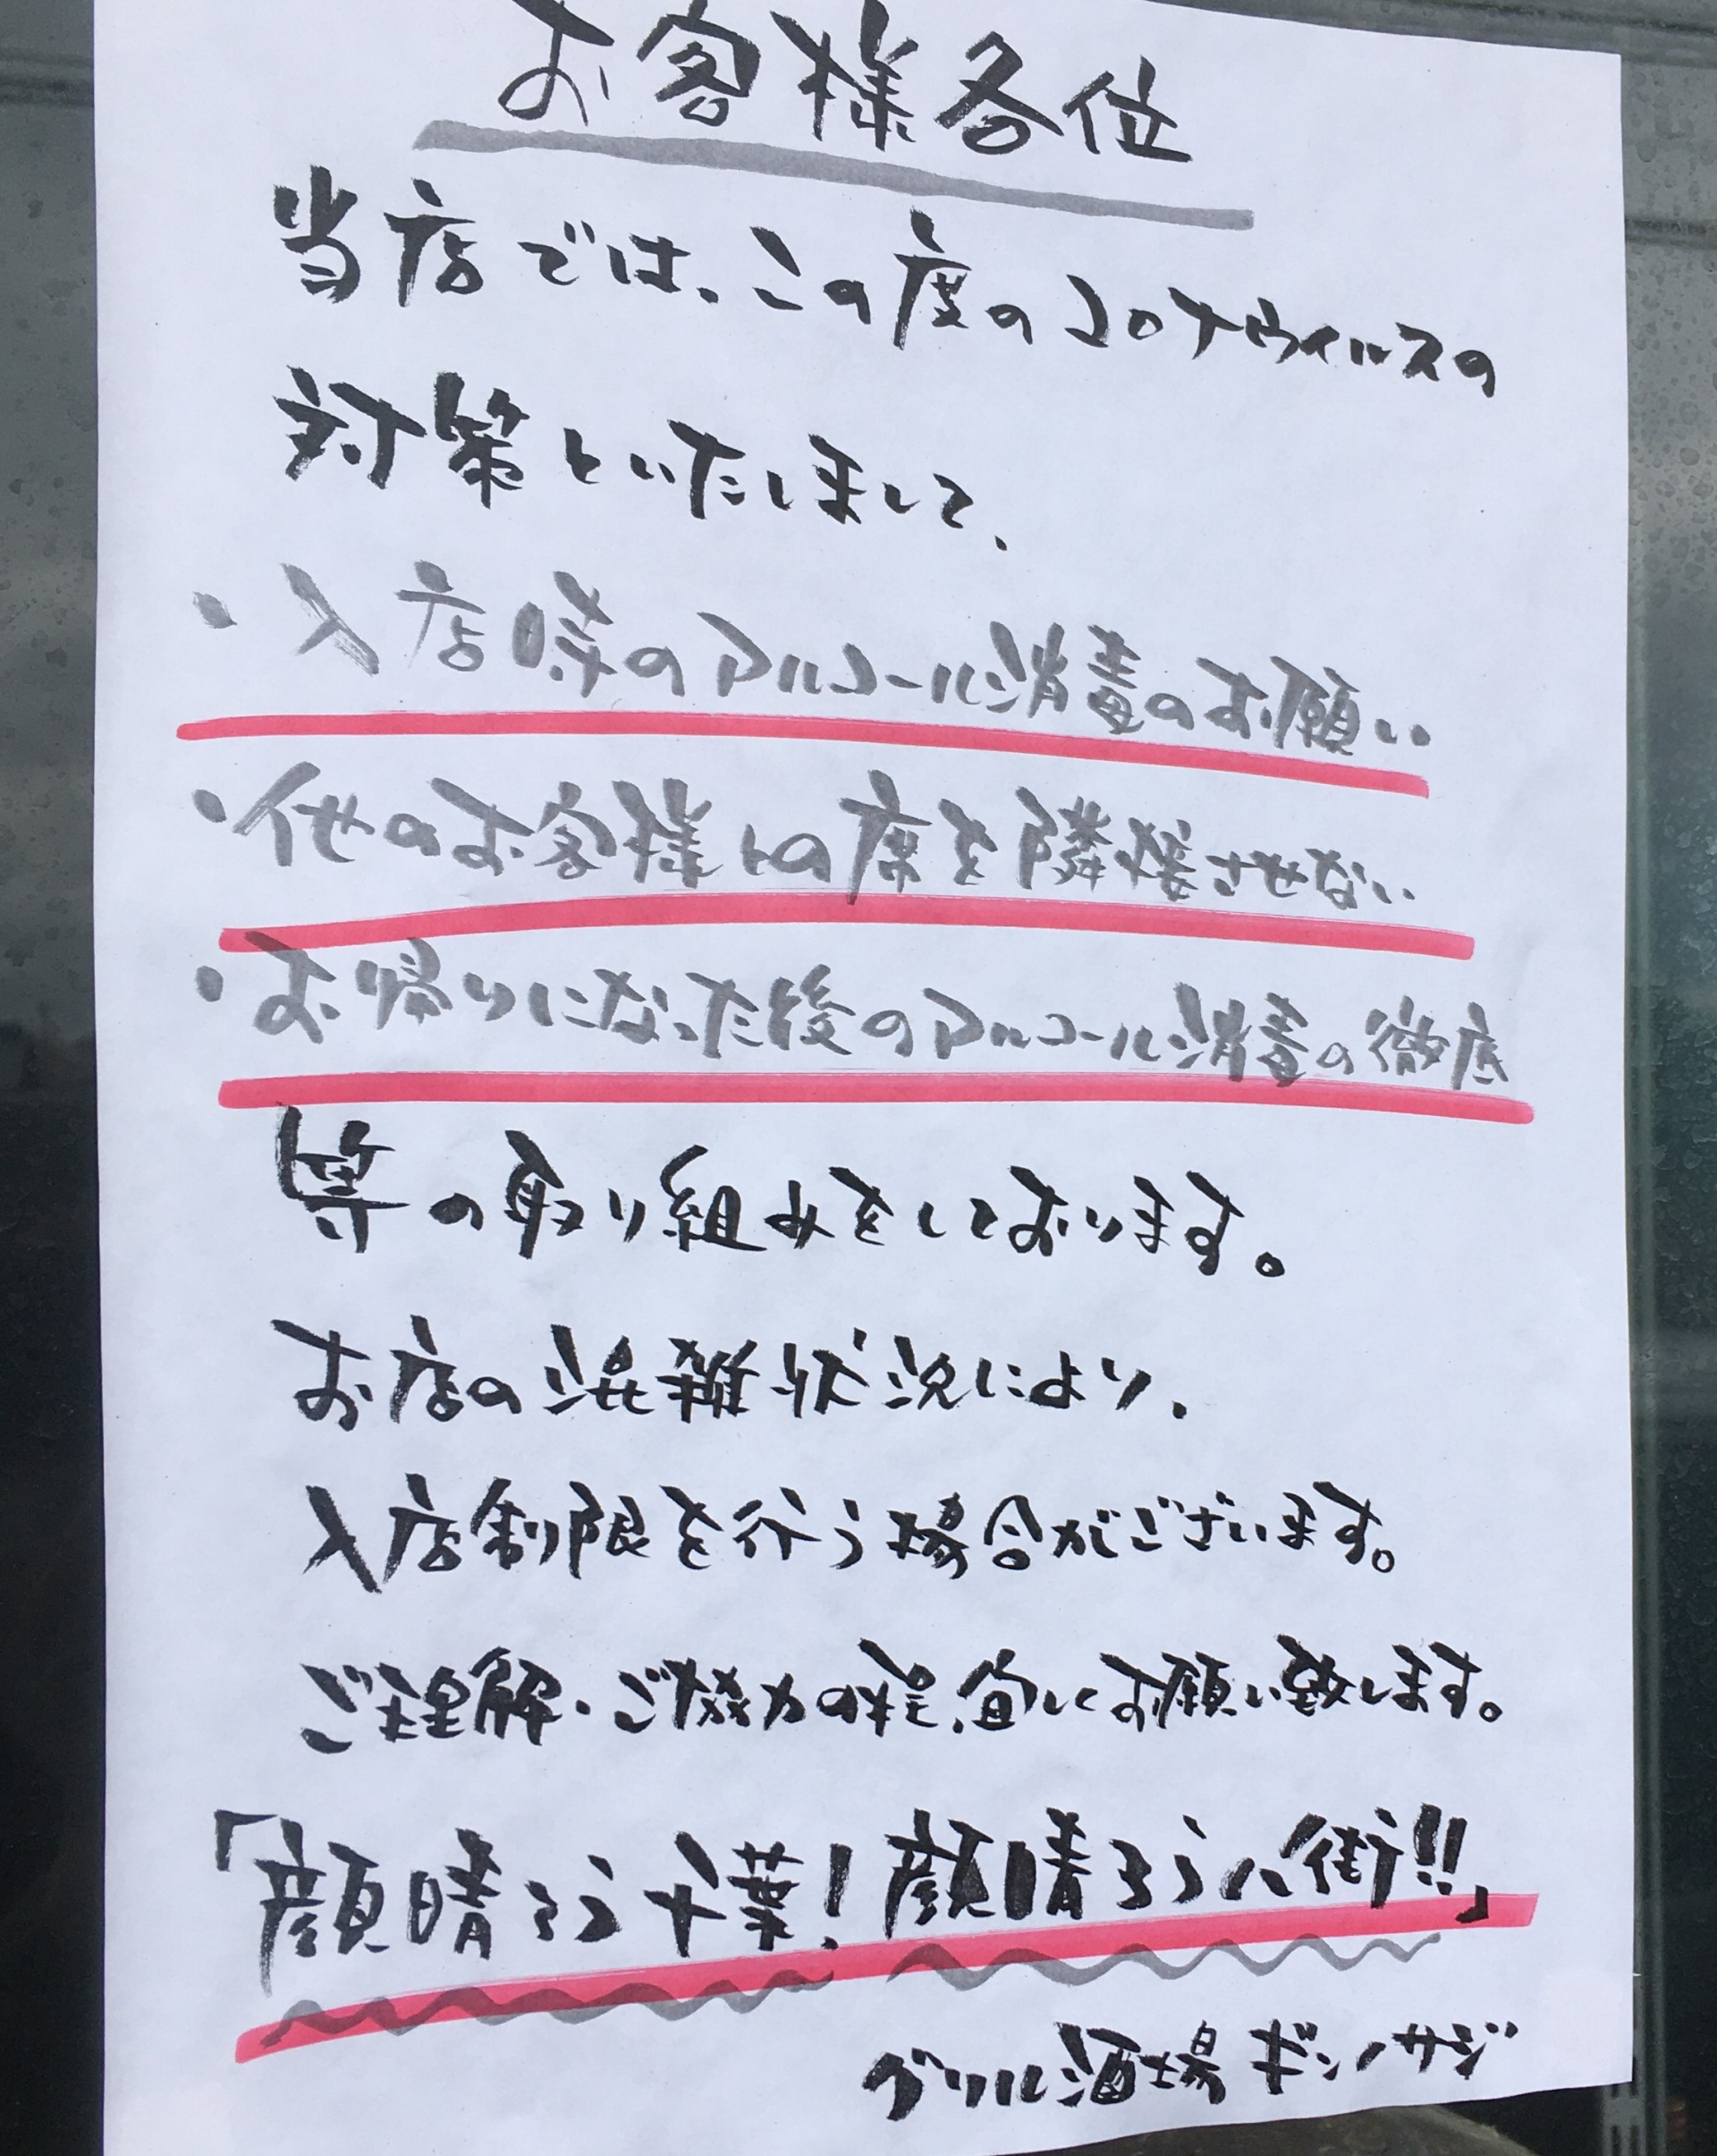 お客様各位
当店では、この度のコロナウィルスの
対策といたしまして、
・入店時のアルコール消毒のお願い
・他のお客様との席を隣接させない
・お帰りになった後のアルコール消毒の徹底
等の取り組みをしております。
お店の混雑状況により、
入店制限を行う場合がございます。
ご理解・ご協力の程、宜しくお願い致します。
「顔晴ろう千葉!顔晴ろう八街!!」
グリル酒場 ギンノサジ